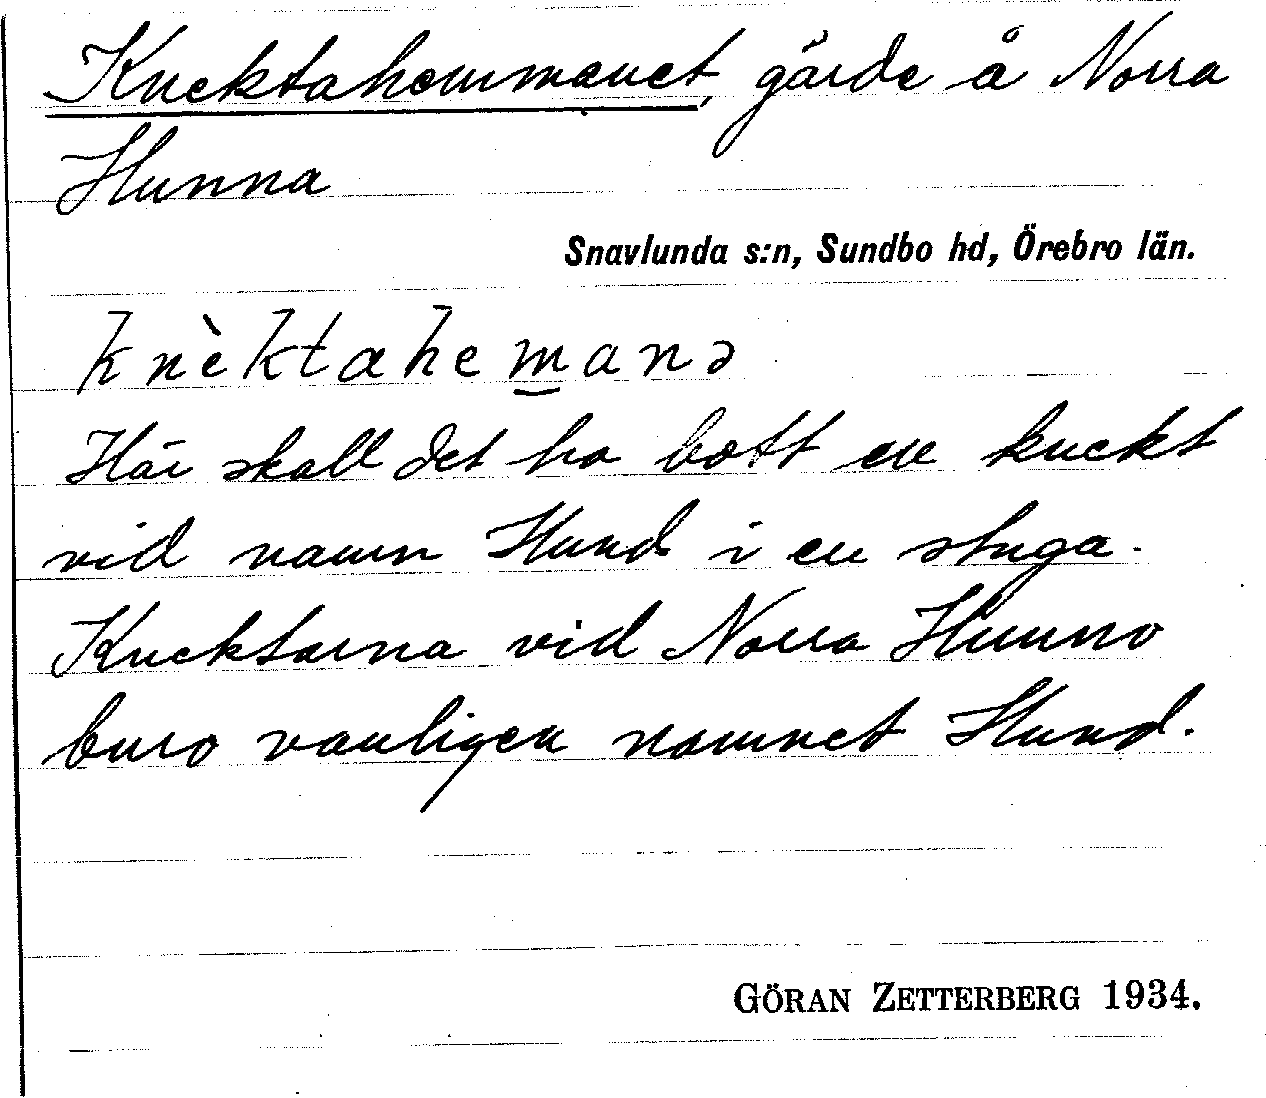 Knektahemmanet, gärde å Norra
Hunna
Snavlunda s:n, Sundbo hd, Örebro län.
knὲktahemanə
Här skall det ha bott en knekt
vid namn Hund i en stuga.
Knektarna vid Norra Hunna
buro vanligen namnet Hund.
GÖRAN ZETTERBERG 1934.